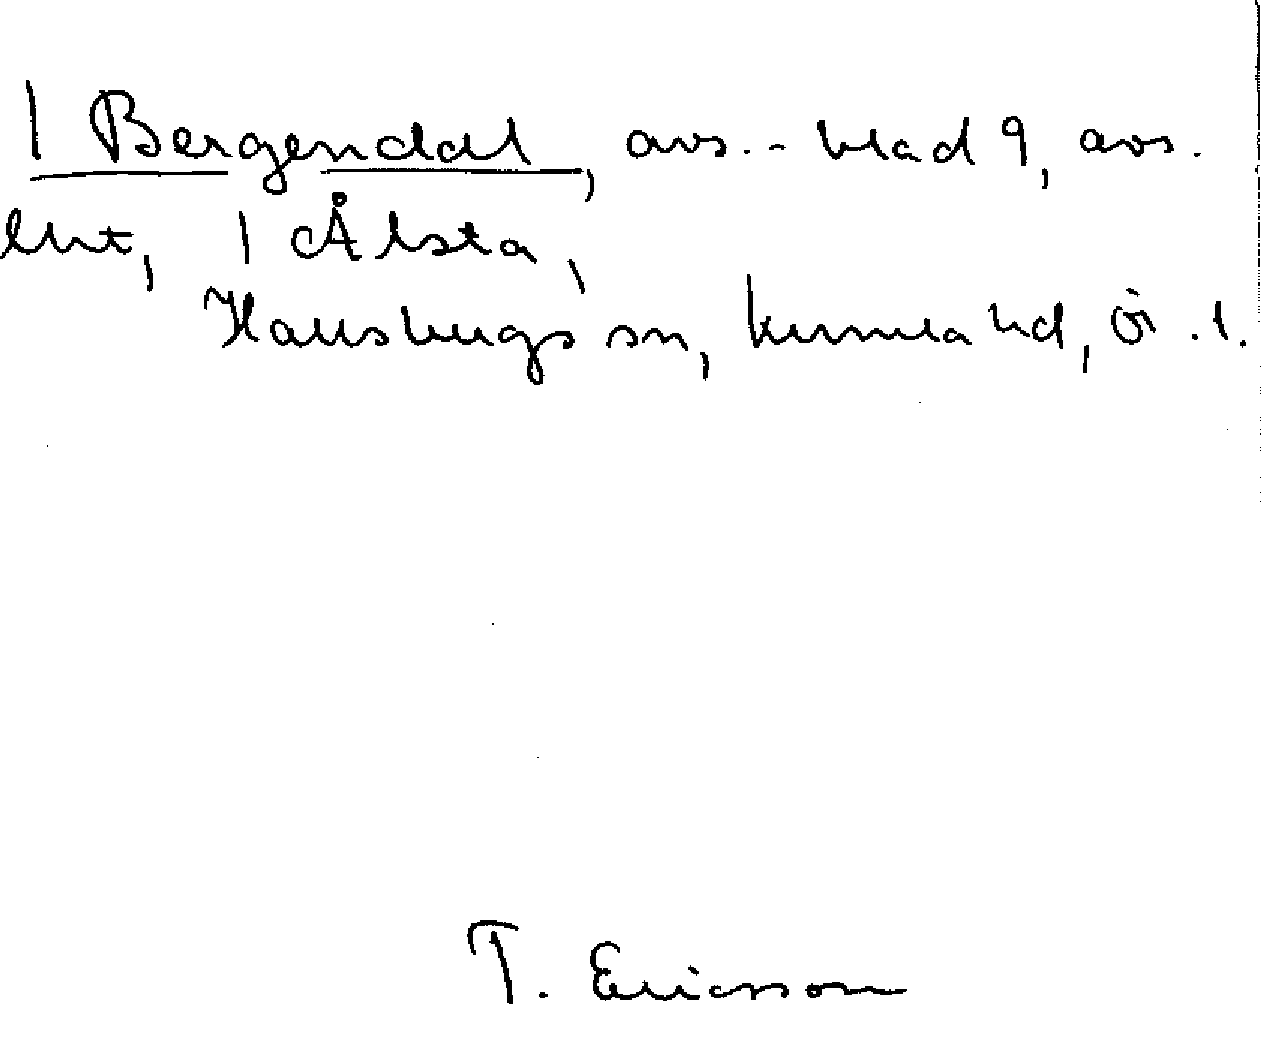 1 Bergendal, avs.- blad 9, avs.
lht, 1 Ålsta,
Hallsbergs sn, Kumla hd, Ör. l.
T. Ericsson